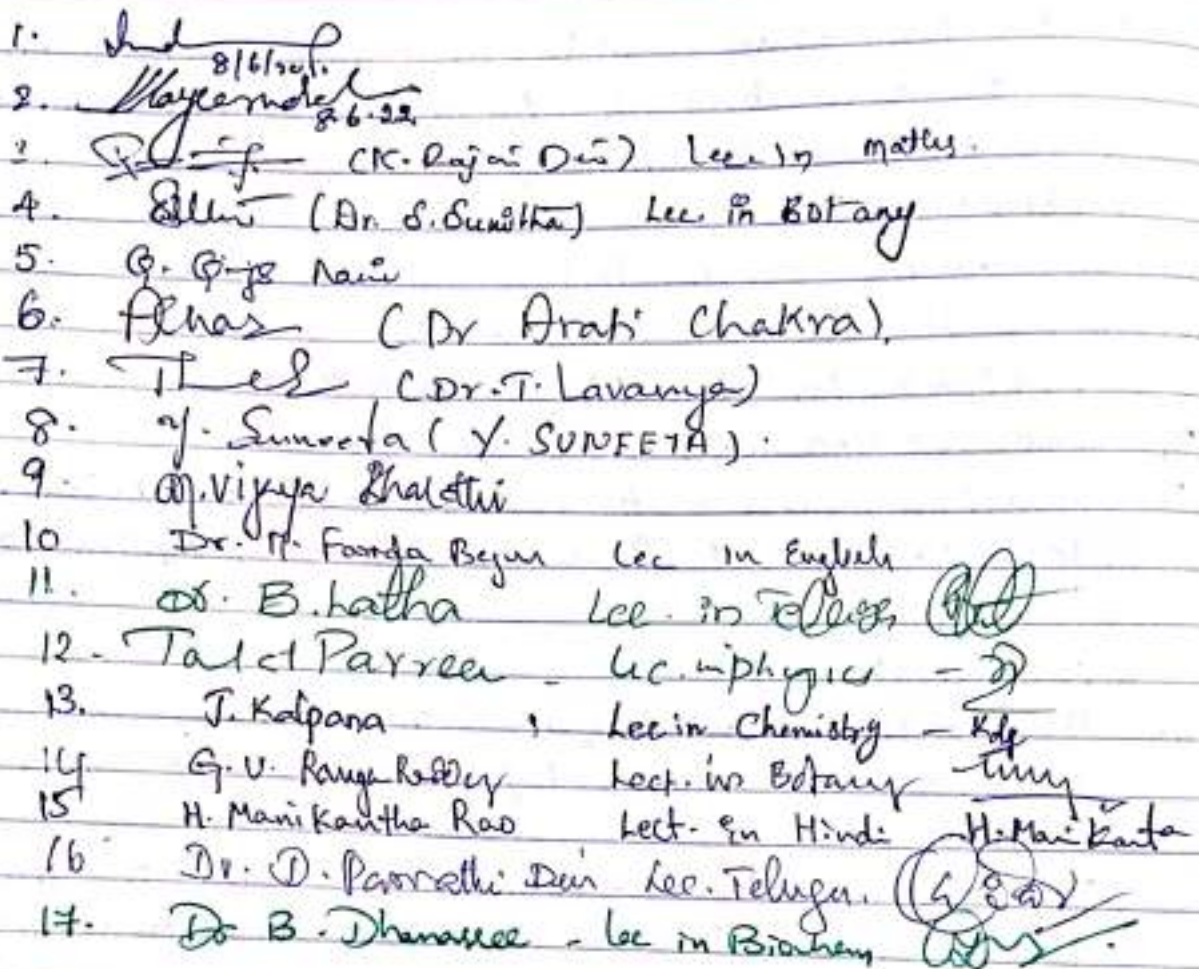 1. 8/6/
2. 8.6.22
3. (K. Rajani Devi) Lec. in maths.
4. (Dr. S. Sunitha) Lec. in Botany
5. G.
6. (Dr Arati Chakra),
7. (Dr. T. Lavanya)
8. Y. Suneeta (Y. SUNEETA).
9. M. Vijaya Bharathi
10 Dr. Begum Lec in English
11. Dr. B. Latha Lec. in Telugu
12 - Parveen - Lec. in physics -
13. J. Kalpana, Lec in Chemistry - Klp
14 G.V. Ranga Reddy Lect. in Botany
15 H. Manikantha Rao Lect. in Hindi - H. Manikanta
16 Dr. D. Parvathi Devi Lec. Telugu.
17. Dr B. Dhanasree - Lec in Biochem